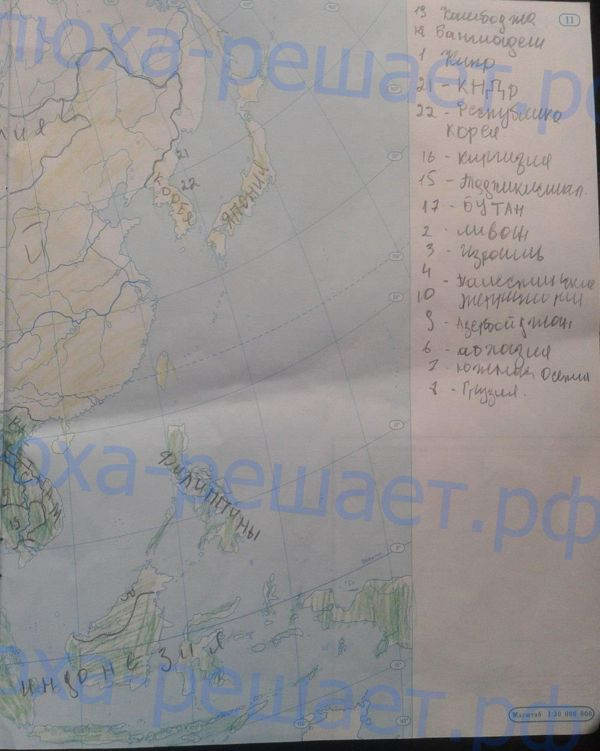 люха-решает.рф
11
19 Камбоджа
18 Бангладеш
1 Кипр
21 - КНДР
22 - Республика
Корея
16 - Киргизия
15 - Таджикистан
17 - БУТАН
2 - Ливан
3 - Израиль
4 - Палестинские
территории
10
9 - Азербайджан
6 - Абхазия
7 - Южная Осетия
8 - Грузия.
21
22
КОРЕЯ
ЯПОНИЯ
люха-решает.рф
ВЬЕТНАМ
19
ФИЛИППИНЫ
ИНДОНЕЗИЯ
люха-решает.рф
Масштаб 1:30 000 000